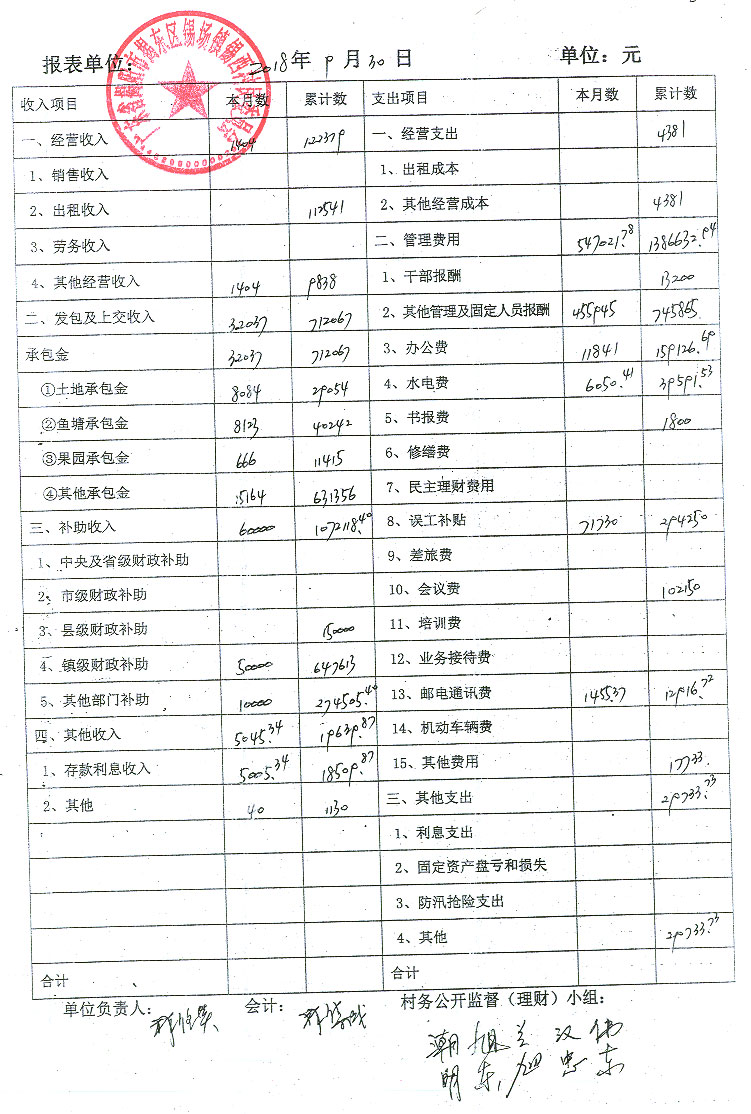 报表单位: 2018年 9月 30日 单位: 元
收入项目 本月数 累计数 支出项目 本月数 累计数
一、经营收入 1404 122379 一、经营支出 4381
1、销售收入 1、出租成本
2、出租收入 112541 2、其他经营成本 4381
3、劳务收入 二、管理费用 547021.78 1386632.94
4、其他经营收入 1404 9838 1、干部报酬 13200
二、发包及上交收入 32037 712067 2、其他管理及固定人员报酬 455945 745865
承包金 32037 712067 3、办公费 11841 159126.69
①土地承包金 8084 29054 4、水电费 6050.41 39591.53
②鱼塘承包金 8123 40242 5、书报费 1800
③果园承包金 666 11415 6、修缮费
④其他承包金 15164 631356 7、民主理财费用
三、补助收入 60000 1072118.40 8、误工补贴 71730 294250
1、中央及省级财政补助 9、差旅费
2、市级财政补助 10、会议费 102150
3、县级财政补助 150000 11、培训费
4、镇级财政补助 50000 647613 12、业务接待费
5、其他部门补助 10000 274505.40 13、邮电通讯费 1455.37 12916.72
四、其他收入 5045.34 19639.87 14、机动车辆费
1、存款利息收入 5005.34 18509.87 15、其他费用 17733
2、其他 40 1130 三、其他支出 29733.73
1、利息支出
2、固定资产盘亏和损失
3、防汛抢险支出
4、其他 29733.73
合计 合计
单位负责人: 会计: 村务公开监督(理财)小组: